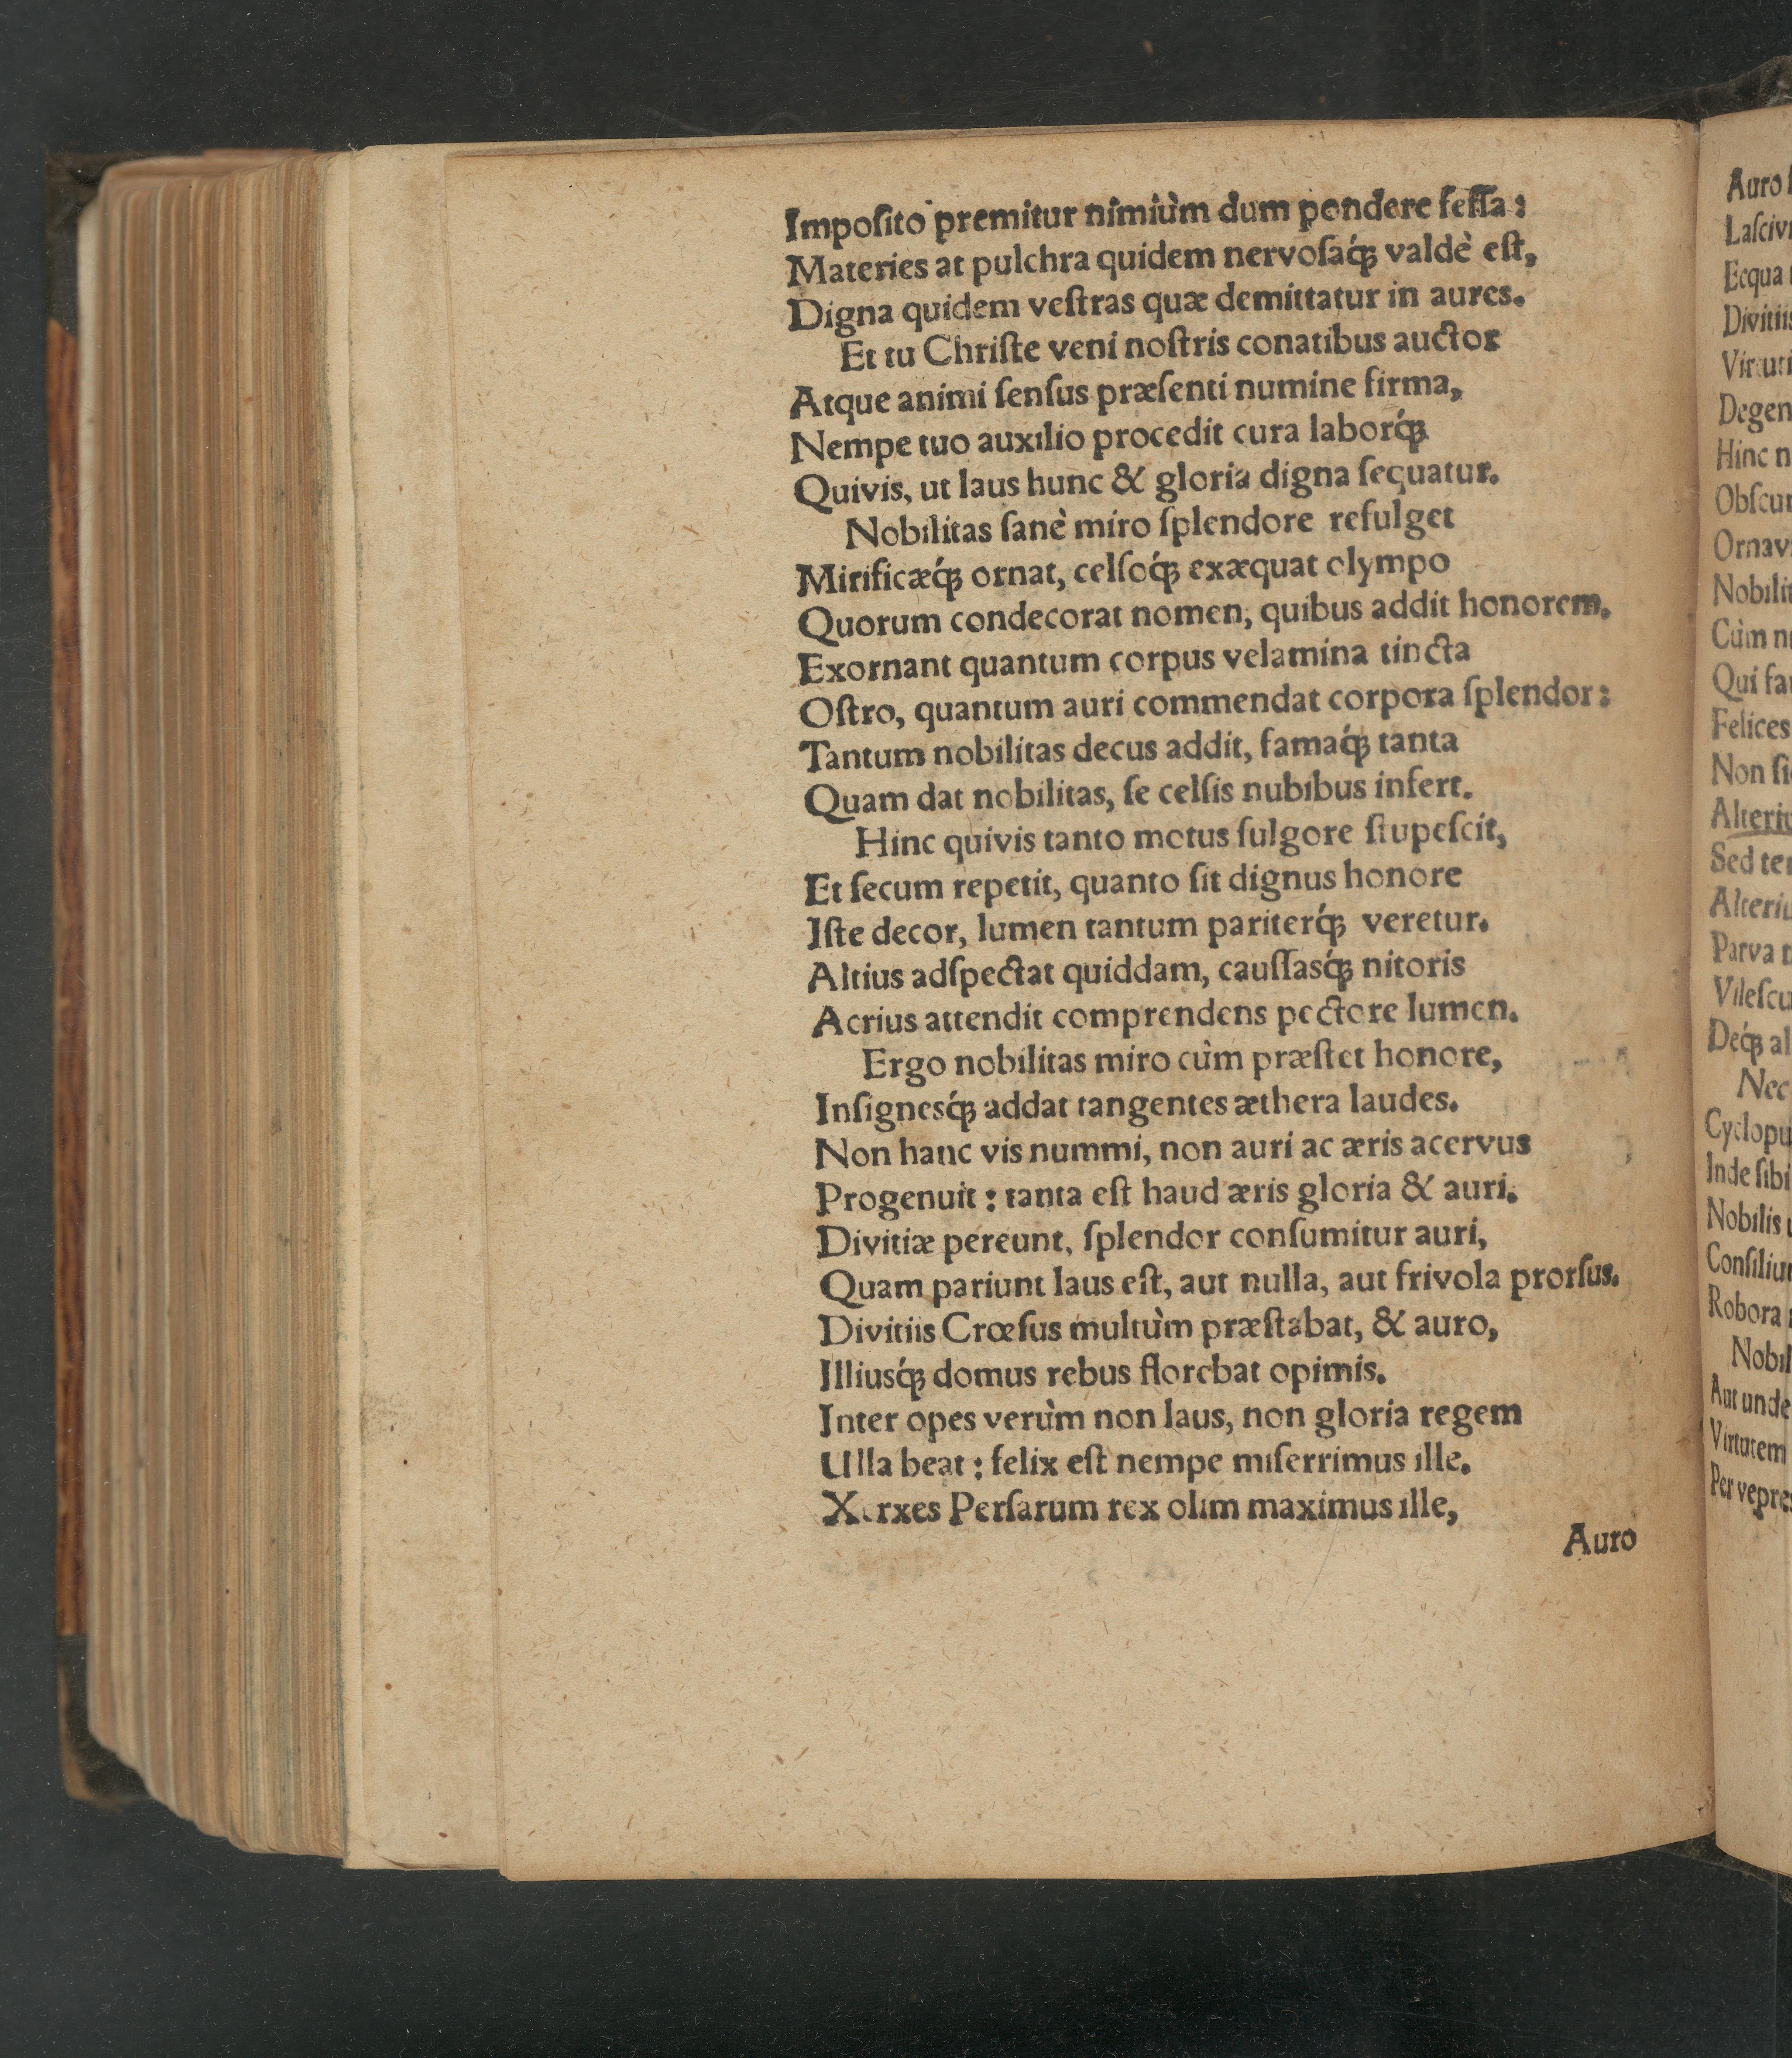 Impoſito premitur nimiùm dum pondere feſſa:
Materies at pulchra quidem nervoſaq́ꝫ valdè eſt,
Digna quidem veſtras quæ demittatur in aures.
Et tu Chriſte veni noſtris conatibus auctor
Atque animi ſenſus præſenti numine firma,
Nempe tuo auxilio procedit cura laborq́ꝫ
Quivis, ut laus hunc & gloria digna ſequatur.
Nobilitas ſanè miro ſplendore refulget
Mirificæq́ꝫ ornat, celſoq́ꝫ exæquat olympo
Quorum condecorat nomen, quibus addit honorem.
Exornant quantum corpus velamina tincta
Oſtro, quantum auri commendat corpora ſplendor:
Tantum nobilitas decus addit, famaq́ꝫ tanta
Quam dat nobilitas, ſe celſis nubibus infert.
Hinc quivis tanto motus fulgore ſtupeſcit,
Et ſecum repetit, quanto ſit dignus honore
Iſte decor, lumen tantum pariterq́ꝫ veretur.
Altius adſpectat quiddam, cauſſasq́ꝫ nitoris
Acrius attendit comprendens pectore lumen.
Ergo nobilitas miro cùm præſtet honore,
Inſignesq́ꝫ addat tangentes æthera laudes.
Non hanc vis nummi, non auri ac æris acervus
Progenuit: tanta eſt haud æris gloria & auri.
Divitiæ pereunt, ſplendor conſumitur auri,
Quam pariunt laus eſt, aut nulla, aut frivola prorſus.
Divitiis Crœſus multùm præſtabat, & auro,
Illiusq́ꝫ domus rebus florebat opimis.
Inter opes verùm non laus, non gloria regem
Ulla beat: felix eſt nempe miſerrimus ille.
Xerxes Perſarum rex olim maximus ille,
Auro
Auro
Ecqua
Hinc
Cùm
Qui
Felices
Non
Sed
Parva
Deq́ꝫ
Nec
Inde ſibi
Nobilis
Robora
Aut unde
Virtutem
Per